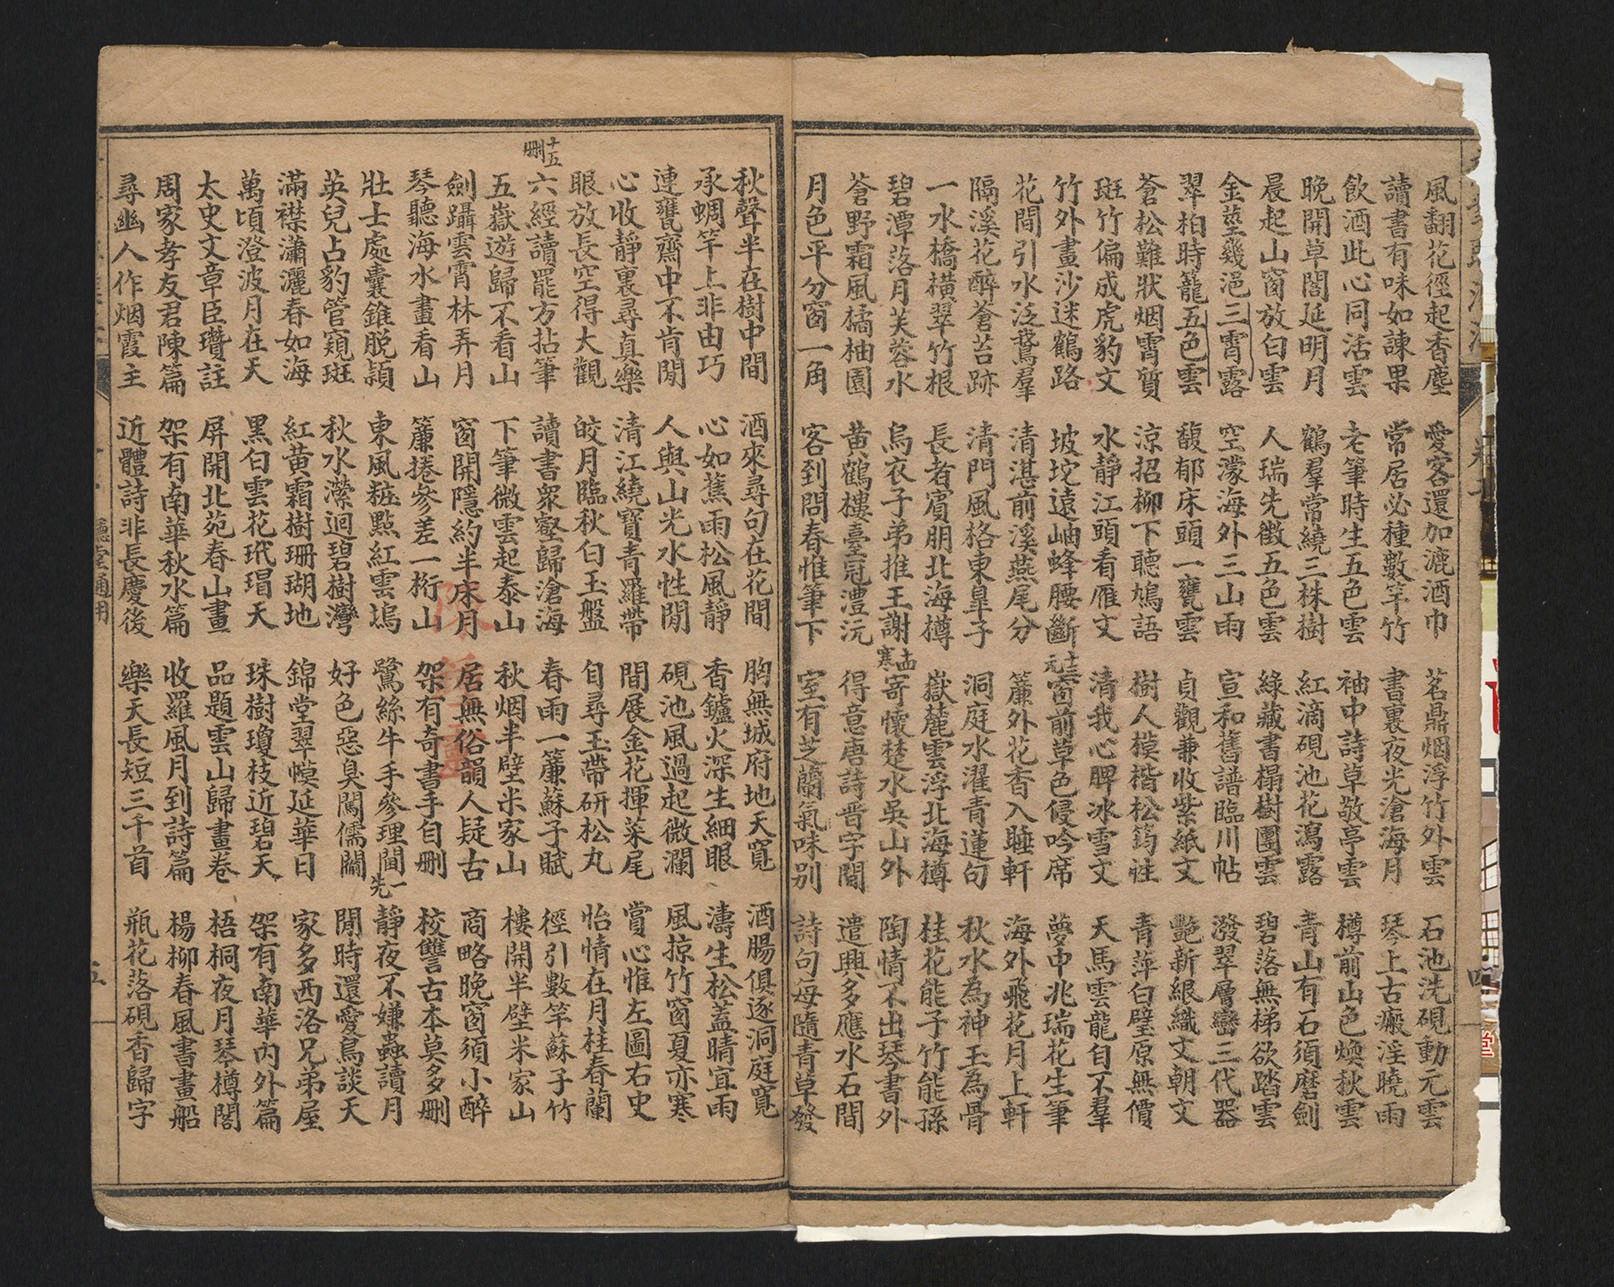 風翻花徑起香塵 愛客還加漉酒巾 茗鼎烟浮竹外雲 石池洗硯動元雲
讀書有味如諫果 常居必種數竿竹 書裏夜光滄海月 琴上古瘢淫曉雨
飲酒此心同活雲 老筆時生五色雲 袖中詩草敬亭雲 樽前山色煥秋雲
晚開草閣延明月 鶴羣常繞三株樹 紅滴硯池花瀉露 青山有石須磨劍
晨起山窗放白雲 人瑞先徵五色雲 綠藏書榻樹團雲 碧落無梯欲踏雲
金莖幾浥三霄露 空濛海外三山雨 宣和舊譜臨川帖 潑翠層巒三代器
翠柏時籠五色雲 馥郁床頭一甕雲 貞觀兼收紫紙文 艷新織文朝文
蒼松難狀烟霄質 涼招柳下聽鳩語 樹人模楷松筠性 青萍白璧原無價
斑竹偏成虎豹文 水靜江頭看雁文 清我心脾冰雪文 天馬雲龍自不羣
竹外畫沙迷鶴路 坡坨遠岫蜂腰斷 十三元 窗前草色侵吟席 夢中兆瑞花生筆
花間引水泛鵞羣 清湛前溪燕尾分 簾外花香入睡軒 海外飛花月上軒
隔溪花醉蒼苔跡 清門風格東皐子 洞庭水濯青蓮句 秋水為神玉為骨
一水橋橫翠竹根 長者賓朋北海樽 嶽麓雲浮北海樽 桂花能子竹能孫
碧潭落月芙蓉水 烏衣子弟推王謝 十四寒 寄懷楚水吳山外 陶情不出琴書外
蒼野霜風橘柚園 黃鶴樓臺冠澧沅 得意唐詩晋字間 遣興多應水石間
月色平分窗一角 客到問春惟筆下 室有芝蘭氣味别 詩句每隨青草發
秋聲半在樹中間 酒來尋句在花間 胸無城府地天寬 酒腸俱逐洞庭寬
承蜩竿上非由巧 心如蕉雨松風靜 香鑪火深生細眼 濤生松蓋晴宜雨
連甕齋中不肯閒 人與山光水性閒 硯池風過起微瀾 風掠竹窗夏亦寒
心收靜裏尋真樂 清江繞寶青羅帶 間展金花揮菜尾 賞心惟左圖右史
眼放長空得大觀 皎月臨秋白玉盤 自尋玉帶研松丸 怡情在月桂春蘭
十五刪 六經讀罷方拈筆 讀書衆壑歸滄海 春雨一簾蘇子賦 徑引數竿蘇子竹
五嶽遊歸不看山 下筆微雲起泰山 秋烟半壁米家山 樓開半壁米家山
劍躡雲霄林弄月 窗開隱約半床月 居無俗韻人疑古 商略晚窗須小醉
琴聽海水畫看山 簾捲參差一桁山 架有奇書手自刪 校讐古本莫多刪
壯士處囊錐脫穎 東風粧點紅雲塢 鷺絲牛手參理間 一先 靜夜不嫌蟲讀月
英兒占豹管窺斑 秋水瀠迴碧樹灣 好色惡臭闖儒關 閒時還愛鳥談天
滿襟瀟灑春如海 紅黃霜樹珊瑚地 錦堂翠幙延華日 家多西洛兄弟屋
萬頃澄波月在天 黑白雲花玳瑁天 珠樹瓊枝近碧天 架有南華內外篇
太史文章臣瓚註 屏開北苑春山畫 品題雲山歸畫卷 梧桐夜月琴樽閣
周家孝友君陳篇 架有南華秋水篇 收羅風月到詩篇 楊柳春風書畫船
尋幽人作烟霞主 近體詩非長慶後 樂天長短三千首 瓶花落硯香歸字
廳堂通用 五